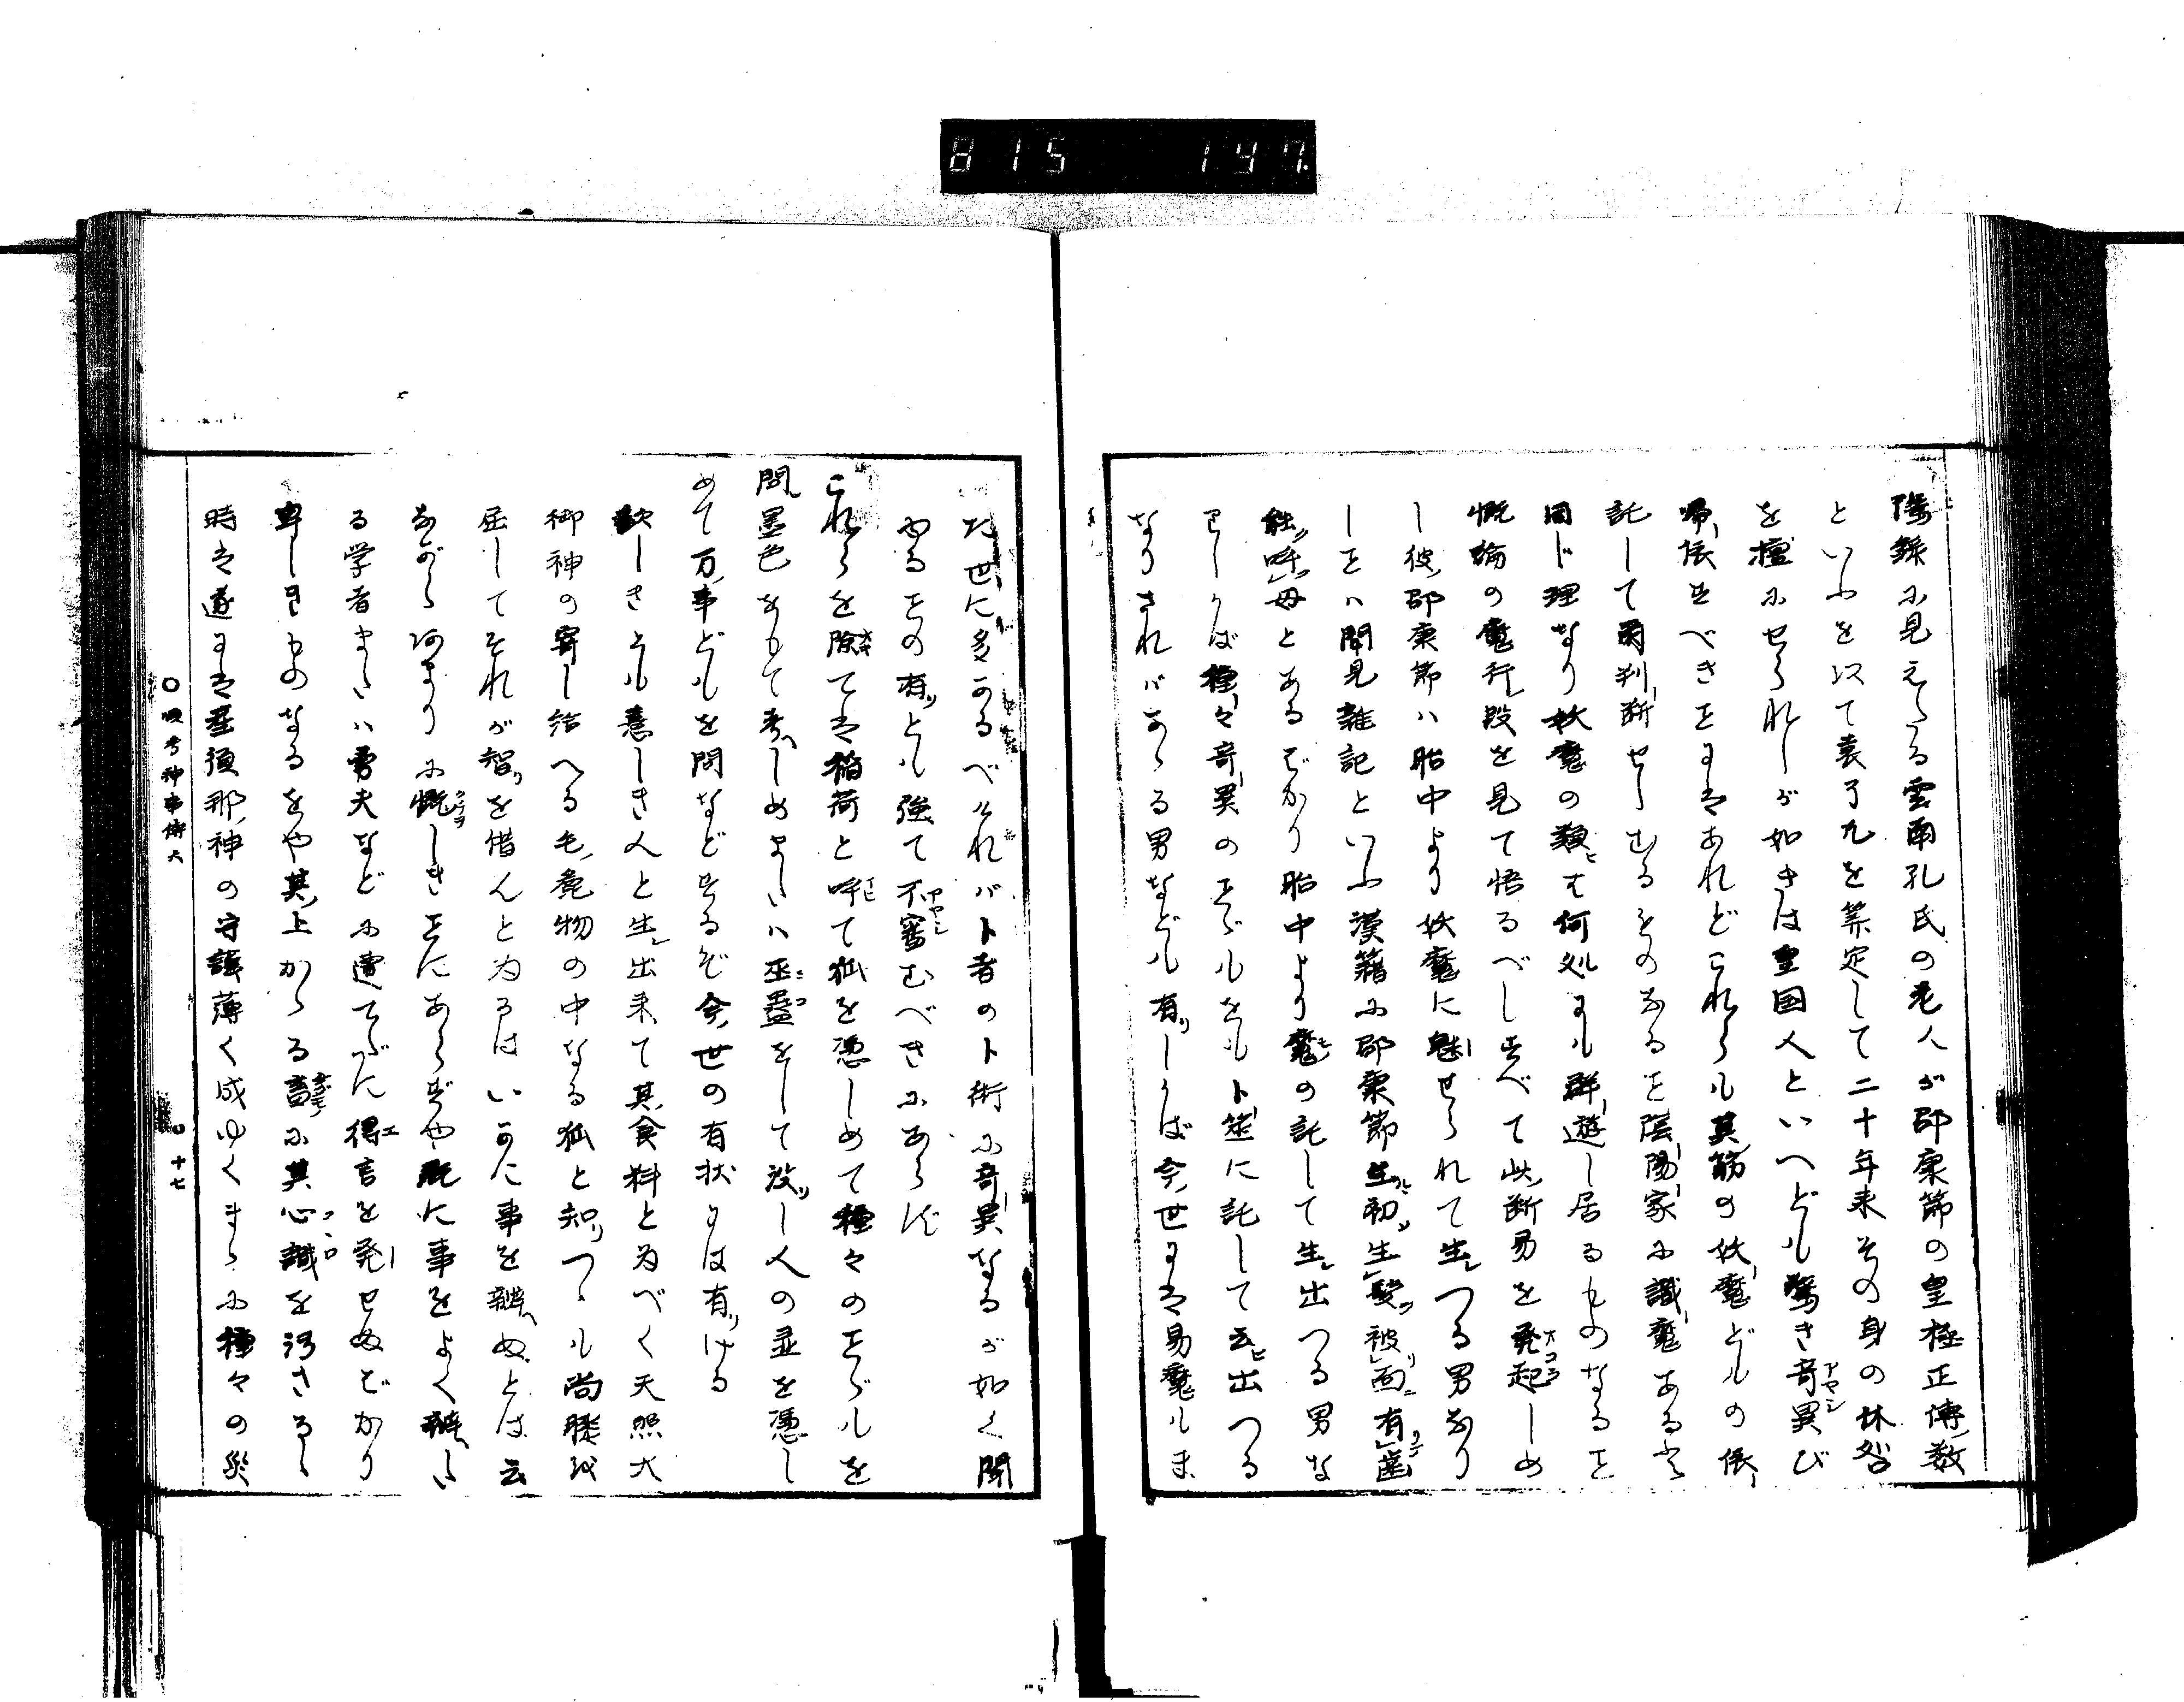 815 147
隲録に見えたる雲南孔氏の老人が邵康節の皇極正傳数
といふを以て袁了凡を筭定して二十年来その身の休咎
を擅にせられしが如きは皇国人といへども驚き奇異び
帰依すべきことにはあれどこれらも其筋の妖魔どもの依
託して判断せしむるものなることを陰陽家に識魔ある
同じ理なり妖魔の類は何処にも群遊し居るものなること
慨論の魔行段を見て悟るべしすべて此断易を発起しめ
し彼邵康節ハ胎中より妖魔に魅せられて生つる男なり
しことハ聞見雑記といふ漢籍に邵康節生初生髪被面有歯
能呼母とあるばかり胎中より魔の託して生出つる男な
りしかば種々奇異のことゞもをも卜筮に託して云出つる
なりさればかゝる男なども有しかば今世にハ易魔もま
た世に多かるべければ卜者の卜術に奇異なるが如く聞
ゆるもの有とも強て不審むべきにあらず
これらを除ては稲荷と呼て狐を憑しめて種々のことゞもを
問墨色をもて考しめまたハ巫蠱をして没し人の霊を憑し
めて万事どもを問などするぞ今世の有状には有ける
歎しきかも悲しき人と生出来て其食料と為べく天照大
御神の寄し給へる毛麁物の中なる狐と知つゝも尚膝を
屈してそれが智を借んと為るはいかに事を辨ぬとは云
ながらあまりに慨しきことにあらずや既に事をよく辨た
る学者またハ勇夫などに遭てだに得言を発せぬばかり
卑しきものなるをや其上かゝる畜に其心識を汚さるゝ
時は遂には産須那神の守護薄く成ゆくまゝに種々の災
十七